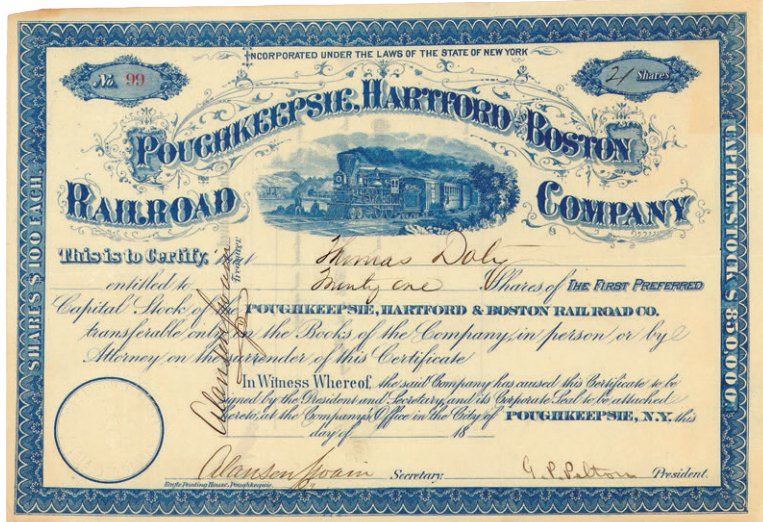 INCORPORATED UNDER THE LAWS OF THE STATE OF NEW YORK
No. 99
21 Shares
POUGHKEEPSIE, HARTFORD AND BOSTON
RAILROAD COMPANY
SHARES $100 EACH.
CAPITAL STOCK $850,000
This is to Certify, that Thomas Daly
entitled to Twenty one Shares of THE FIRST PREFERRED
Capital Stock of the POUGHKEEPSIE, HARTFORD & BOSTON RAIL ROAD CO.
transferable only in the Books of the Company, in person or by
Attorney, on the surrender of this Certificate
In Witness Whereof, the said Company has caused this Certificate to be
signed by the President and Secretary, and its Corporate Seal to be attached
hereto, at the Company's Office in the City of POUGHKEEPSIE, N.Y. this
day of 18
Alanson Swain Secretary. G. P. Pelton President.
Eagle Printing House, Poughkeepsie.
Alanson Swain Treasurer